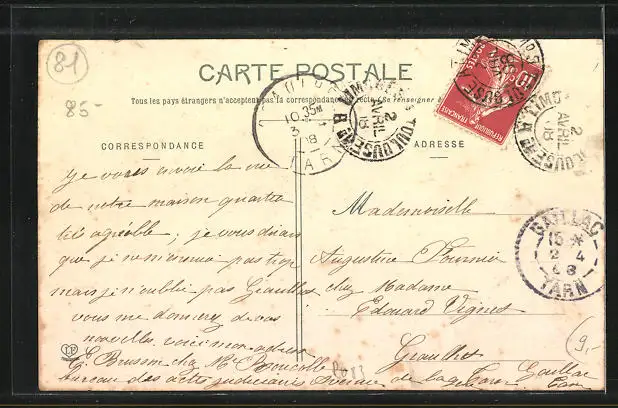 81
85-
CARTE POSTALE
Tous les pays étrangers n'acceptent pas la correspondance au recto (Se renseigner
CORRESPONDANCE
ADRESSE
10 35
3 - 4
08
TARN
2
AVRIL
08
TOULOUSE
10
POSTES
REPUBLIQUE FRANÇAISE
2
AVRIL
08
TOULOUSE
GAILLAC
15 *
2 - 4
08
TARN
je vous envoie la vue
de notre maison quartier
très agréable; je vous dirais
que je m'ennuie pas trop
mais je n'oublie pas Graulhet
vous me donnerez de vos
nouvelles voici mon adresse
E. Brusson chez Me
bureau des actes judiciaires avenue de la gare Gaillac
Tarn
Mademoiselle
Augustine Fournier
chez Madame
Edouard Vignes
Graulhet
Tarn
LF
9,-